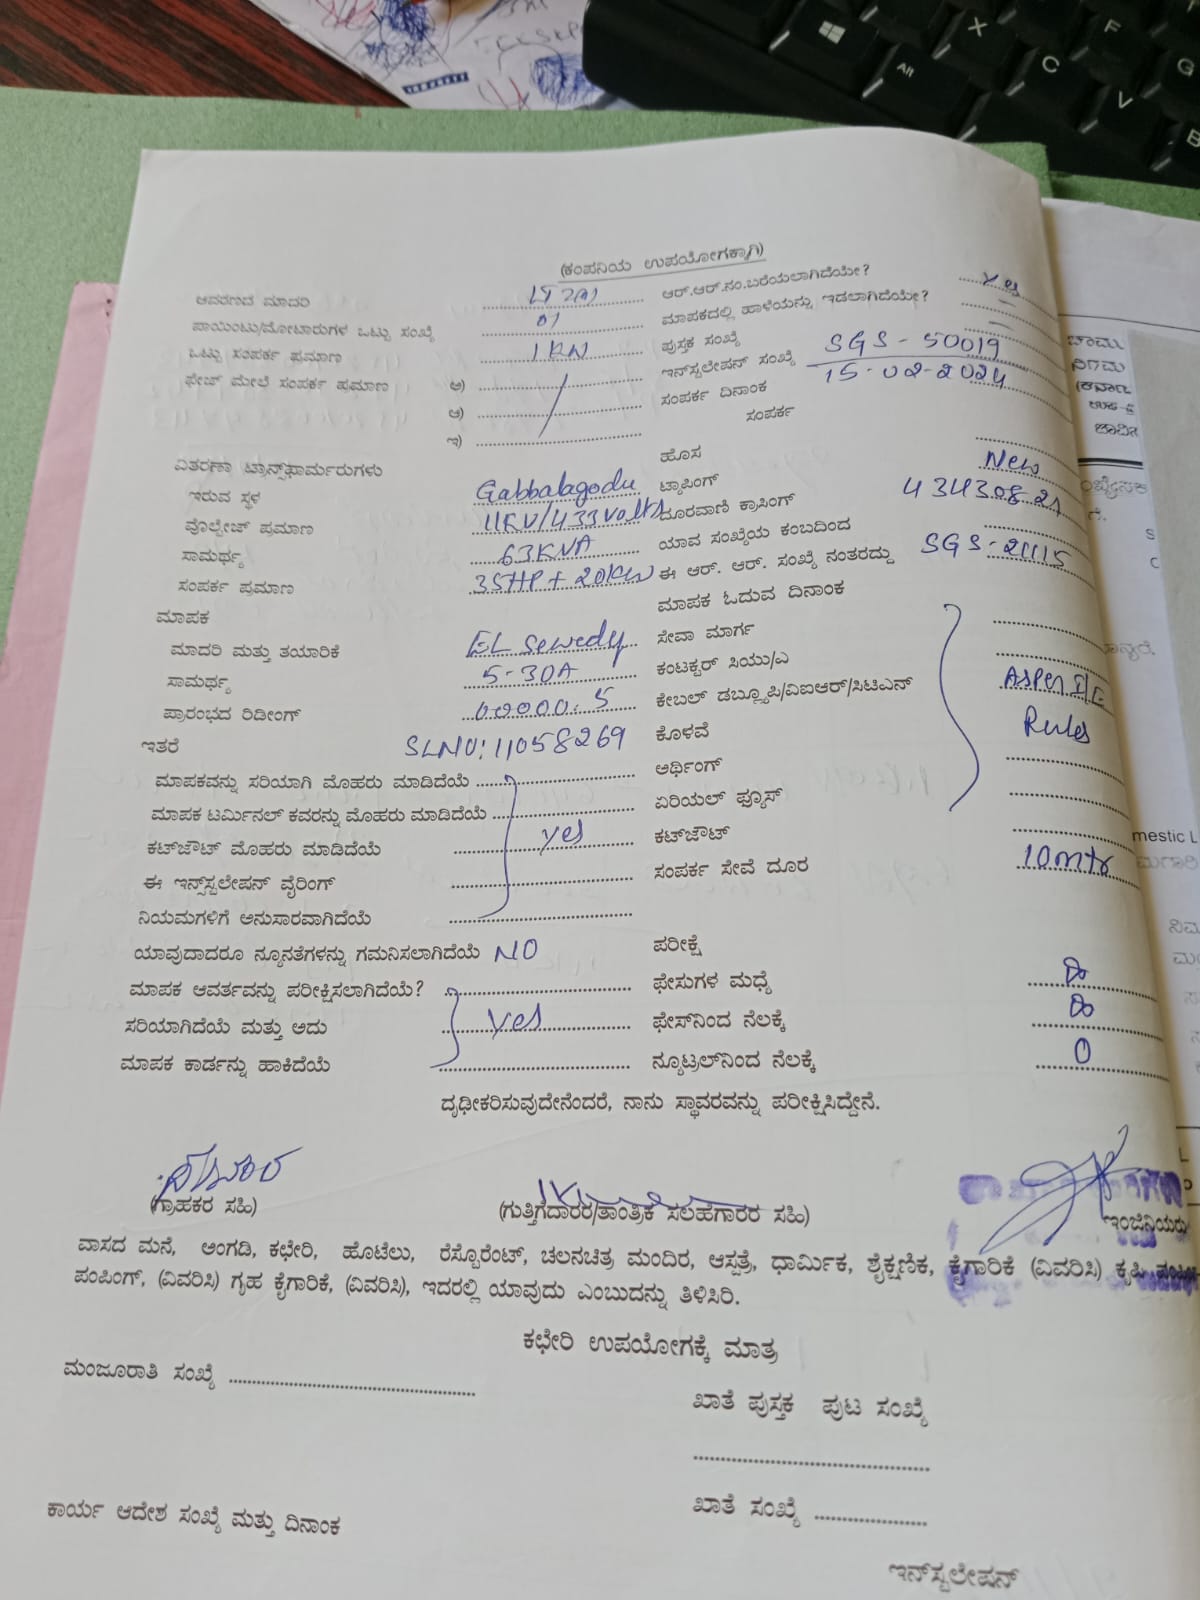 (ಕಂಪನಿಯ ಉಪಯೋಗಕ್ಕಾಗಿ)
ಆವರಣದ ಮಾದರಿ LT 2(a) ಆರ್.ಆರ್.ನಂ.ಬರೆಯಲಾಗಿದೆಯೇ? Yes
ಪಾಯಿಂಟು/ಮೋಟಾರುಗಳ ಒಟ್ಟು ಸಂಖ್ಯೆ 01 ಮಾಪಕದಲ್ಲಿ ಹಾಳೆಯನ್ನು ಇಡಲಾಗಿದೆಯೇ? —
ಒಟ್ಟು ಸಂಪರ್ಕ ಪ್ರಮಾಣ 1KW ಪುಸ್ತಕ ಸಂಖ್ಯೆ —
ಫೇಜ್ ಮೇಲೆ ಸಂಪರ್ಕ ಪ್ರಮಾಣ ಅ) ಇನ್‌ಸ್ಟಲೇಷನ್ ಸಂಖ್ಯೆ SGS - 50019
ಆ) ಸಂಪರ್ಕ ದಿನಾಂಕ 15-02-2024
ಇ) ಸಂಪರ್ಕ
ವಿತರಣಾ ಟ್ರಾನ್ಸ್‌ಫಾರ್ಮರುಗಳು ಹೊಸ New
ಇರುವ ಸ್ಥಳ Gabbalagodu ಟ್ಯಾಪಿಂಗ್ 43430821
ವೋಲ್ಟೇಜ್ ಪ್ರಮಾಣ 11KV/433Volts ದೂರವಾಣಿ ಕ್ರಾಸಿಂಗ್
ಸಾಮರ್ಥ್ಯ 63KVA ಯಾವ ಸಂಖ್ಯೆಯ ಕಂಬದಿಂದ
ಸಂಪರ್ಕ ಪ್ರಮಾಣ 35HP + 20KW ಈ ಆರ್. ಆರ್. ಸಂಖ್ಯೆ ನಂತರದ್ದು SGS-21115
ಮಾಪಕ ಮಾಪಕ ಓದುವ ದಿನಾಂಕ
ಮಾದರಿ ಮತ್ತು ತಯಾರಿಕೆ EL Sewedy ಸೇವಾ ಮಾರ್ಗ
ಸಾಮರ್ಥ್ಯ 5-30A ಕಂಟಕ್ಟರ್ ಸಿಯು/ಎ ASPER I/E
ಪ್ರಾರಂಭದ ರಿಡೀಂಗ್ 00000.5 ಕೇಬಲ್ ಡಬ್ಲ್ಯೂಪಿ/ವಿಐಆರ್/ಸಿಟಿಎನ್ Rules
ಇತರೆ SLNO: 11058269 ಕೊಳವೆ
ಮಾಪಕವನ್ನು ಸರಿಯಾಗಿ ಮೊಹರು ಮಾಡಿದೆಯೆ ಅರ್ಥಿಂಗ್
ಮಾಪಕ ಟರ್ಮಿನಲ್ ಕವರನ್ನು ಮೊಹರು ಮಾಡಿದೆಯೆ ಏರಿಯಲ್ ಫ್ಯೂಸ್
ಕಟ್‌ಔಟ್ ಮೊಹರು ಮಾಡಿದೆಯೆ yes ಕಟ್‌ಔಟ್
ಈ ಇನ್ಸ್‌ಸ್ಟಲೇಷನ್ ವೈರಿಂಗ್ ಸಂಪರ್ಕ ಸೇವೆ ದೂರ 10mtr
ನಿಯಮಗಳಿಗೆ ಅನುಸಾರವಾಗಿದೆಯೆ
ಯಾವುದಾದರೂ ನ್ಯೂನತೆಗಳನ್ನು ಗಮನಿಸಲಾಗಿದೆಯೆ NO ಪರೀಕ್ಷೆ
ಮಾಪಕ ಆವರ್ತವನ್ನು ಪರೀಕ್ಷಿಸಲಾಗಿದೆಯೆ? ಫೇಸುಗಳ ಮಧ್ಯೆ ∞
ಸರಿಯಾಗಿದೆಯೆ ಮತ್ತು ಅದು yes ಫೇಸ್‌ನಿಂದ ನೆಲಕ್ಕೆ ∞
ಮಾಪಕ ಕಾರ್ಡನ್ನು ಹಾಕಿದೆಯೆ ನ್ಯೂಟ್ರಲ್‌ನಿಂದ ನೆಲಕ್ಕೆ 0
ದೃಢೀಕರಿಸುವುದೇನೆಂದರೆ, ನಾನು ಸ್ಥಾವರವನ್ನು ಪರೀಕ್ಷಿಸಿದ್ದೇನೆ.
(ಗ್ರಾಹಕರ ಸಹಿ) (ಗುತ್ತಿಗೆದಾರರ/ತಾಂತ್ರಿಕ ಸಲಹಗಾರರ ಸಹಿ) ಇಂಜಿನಿಯರು
ವಾಸದ ಮನೆ, ಅಂಗಡಿ, ಕಛೇರಿ, ಹೊಟೆಲು, ರೆಸ್ಟೊರೆಂಟ್, ಚಲನಚಿತ್ರ ಮಂದಿರ, ಆಸ್ಪತ್ರೆ, ಧಾರ್ಮಿಕ, ಶೈಕ್ಷಣಿಕ, ಕೈಗಾರಿಕೆ (ವಿವರಿಸಿ) ಕೃಷಿ
ಪಂಪಿಂಗ್, (ವಿವರಿಸಿ) ಗೃಹ ಕೈಗಾರಿಕೆ, (ವಿವರಿಸಿ), ಇದರಲ್ಲಿ ಯಾವುದು ಎಂಬುದನ್ನು ತಿಳಿಸಿರಿ.
ಕಛೇರಿ ಉಪಯೋಗಕ್ಕೆ ಮಾತ್ರ
ಮಂಜೂರಾತಿ ಸಂಖ್ಯೆ
ಖಾತೆ ಪುಸ್ತಕ ಪುಟ ಸಂಖ್ಯೆ
ಖಾತೆ ಸಂಖ್ಯೆ
ಕಾರ್ಯ ಆದೇಶ ಸಂಖ್ಯೆ ಮತ್ತು ದಿನಾಂಕ
ಇನ್‌ಸ್ಟಲೇಷನ್